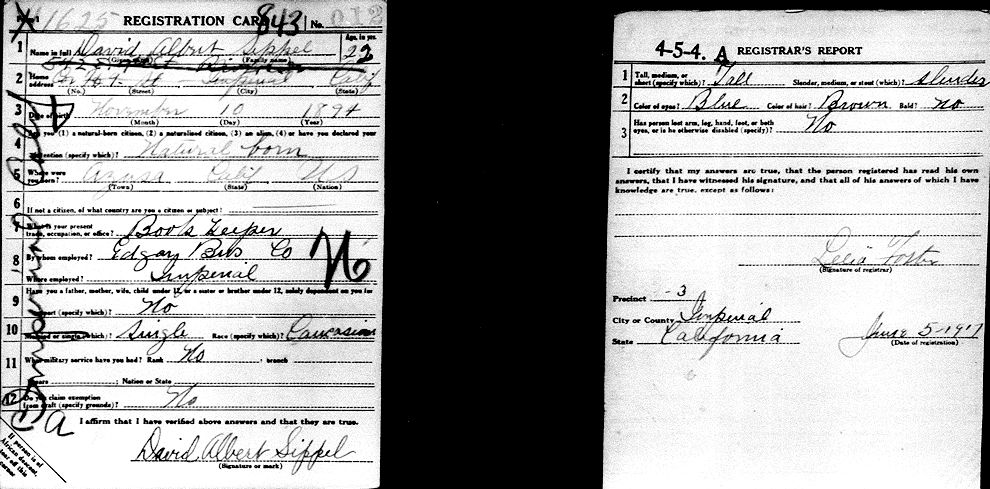 1625 REGISTRATION CARD 843 No. 012
1 Name in full David Albert Sippel Age, in yrs. 22
(Given name) (Family name)
2 Home address St Imperial Calif
(No.) (Street) (City) (State)
3 Date of birth November 10 1894
(Month) (Day) (Year)
4 Are you (1) a natural-born citizen, (2) a naturalized citizen, (3) an alien, (4) or have you declared your
intention (specify which)? Natural born
5 Where were you born? Azusa Calif US
(Town) (State) (Nation)
6 If not a citizen, of what country are you a citizen or subject?
7 What is your present trade, occupation, or office? Book keeper
8 By whom employed? Edgar Bros Co
Where employed? Imperial
No
9 Have you a father, mother, wife, child under 12, or a sister or brother under 12, solely dependent on you for
support (specify which)? No
10 Married or single (which)? Single Race (specify which)? Caucasian
11 What military service have you had? Rank No ; branch
years ; Nation or State
12 Do you claim exemption from draft (specify grounds)? No
a
I affirm that I have verified above answers and that they are true.
David Albert Sippel
(Signature or mark)
If person is of
African descent,
tear off this
corner
4-5-4. A REGISTRAR'S REPORT
1 Tall, medium, or short (specify which)? Tall Slender, medium, or stout (which)? slender
2 Color of eyes? Blue Color of hair? Brown Bald? no
3 Has person lost arm, leg, hand, foot, or both
eyes, or is he otherwise disabled (specify)? No
I certify that my answers are true, that the person registered has read his own
answers, that I have witnessed his signature, and that all of his answers of which I have
knowledge are true, except as follows:
Lelia Foster
(Signature of registrar)
Precinct 3
City or County Imperial
State California June 5-1917
(Date of registration)